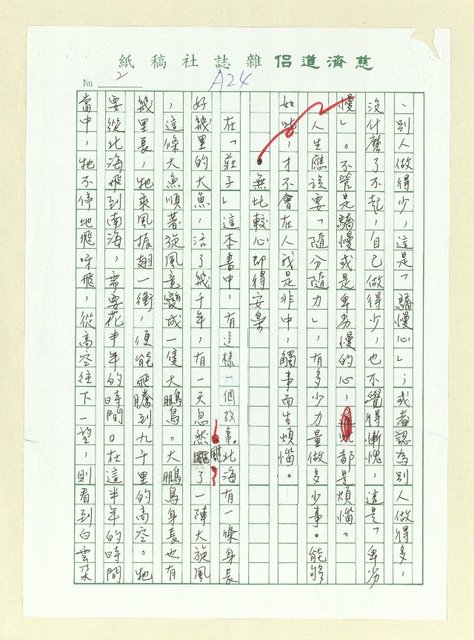 慈濟道侶雜誌社稿紙
No 2
A24
、別人做得少，這是「驕慢心」；或者認為別人做得多，
沒什麼了不起，自己做得少，也不覺得慚愧，這是「卑劣
慢」。不管是驕慢或是卑劣慢的心，都是煩惱。
人生應該要「隨分隨力」，有多少力量做多少事。能夠
如此，才不會在人我是非中，觸事而生煩惱。
無比較心即得安樂
在「莊子」這本書中，有這樣一個故事：北海有一條身長
好幾里的大魚，活了幾千年，有一天忽然颳了一陣大旋風
，這條大魚順著旋風竟變成一隻大鵬鳥。大鵬鳥身長也有
幾里長，牠乘風振翅一衝，便能飛騰到九千里的高空。牠
要從北海飛到南海，需要花半年的時間。在這半年的時間
當中，牠不停地飛呀飛，從高空往下一望，則看到白雲朵